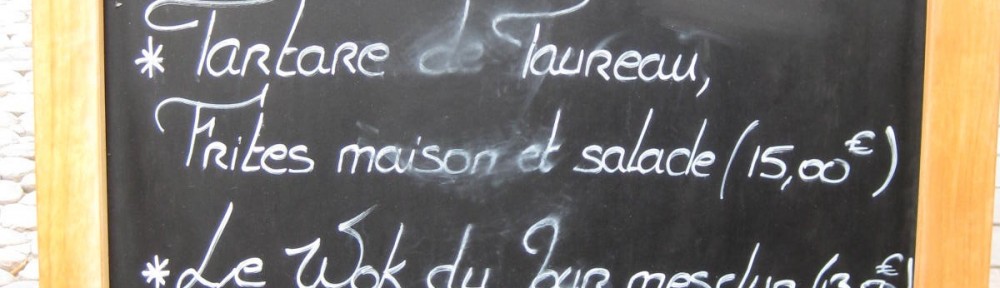 * Tartare de Taureau,
Frites maison et salade (15,00€)
* Le Wok du Jour mesclun (13,00€)